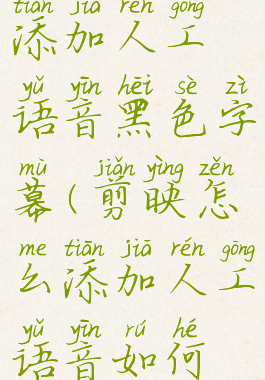 tiān jiā rén gōng
添加人工
yǔ yīn hēi sè zì
语音黑色字
mù jiǎn yìng zěn
幕(剪映怎
me tiān jiā rén gōng
么添加人工
yǔ yīn rú hé
语音如何